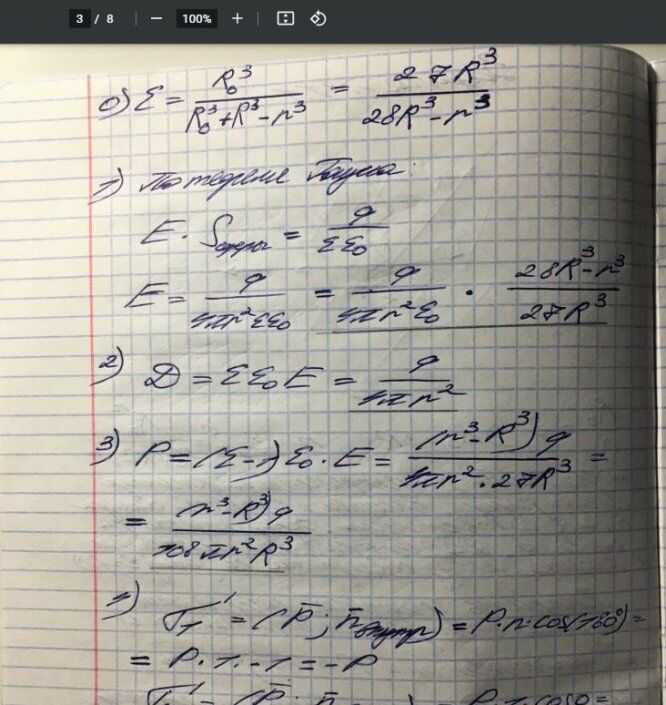 3 / 8 — 100% +
0) ε = R₀³ / (R₀³ + R³ - r³) = 27R³ / (28R³ - r³)
1) По теореме Гаусса:
E · Sсферы = q / (εε₀)
E = q / (4πr²εε₀) = q / (4πr²ε₀) · (28R³ - r³) / (27R³)
2) D = εε₀E = q / (4πr²)
3) P = (ε-1)ε₀·E = (r³-R³)q / (4πr²·27R³) =
= (r³-R³)q / (108πr²R³)
1) σ₁' = (P̄; n̄внутр) = P·n·cos(180°) =
= P·1·-1 = -P